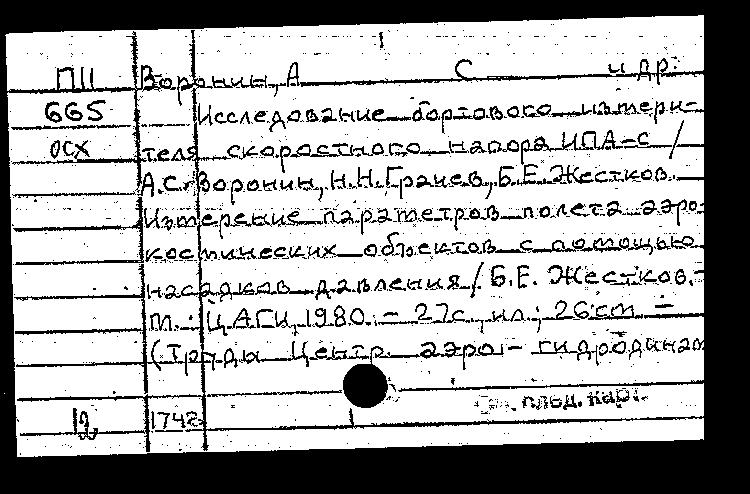 П11 Воронин, А С и др.
665 Исследование бортового измери-
осх теля скоростного напора ИПА-С /
А.С. Воронин, Н.Н. Грачев, Б.Е. Жестков.
Измерение параметров полета аэро-
космических объектов с помощью
насадков давления / Б.Е. Жестков.-
М.: ЦАГИ, 1980. - 27с., ил.; 26см -
(Труды Центр. аэро- гидродинам
След. карт.
12 1742